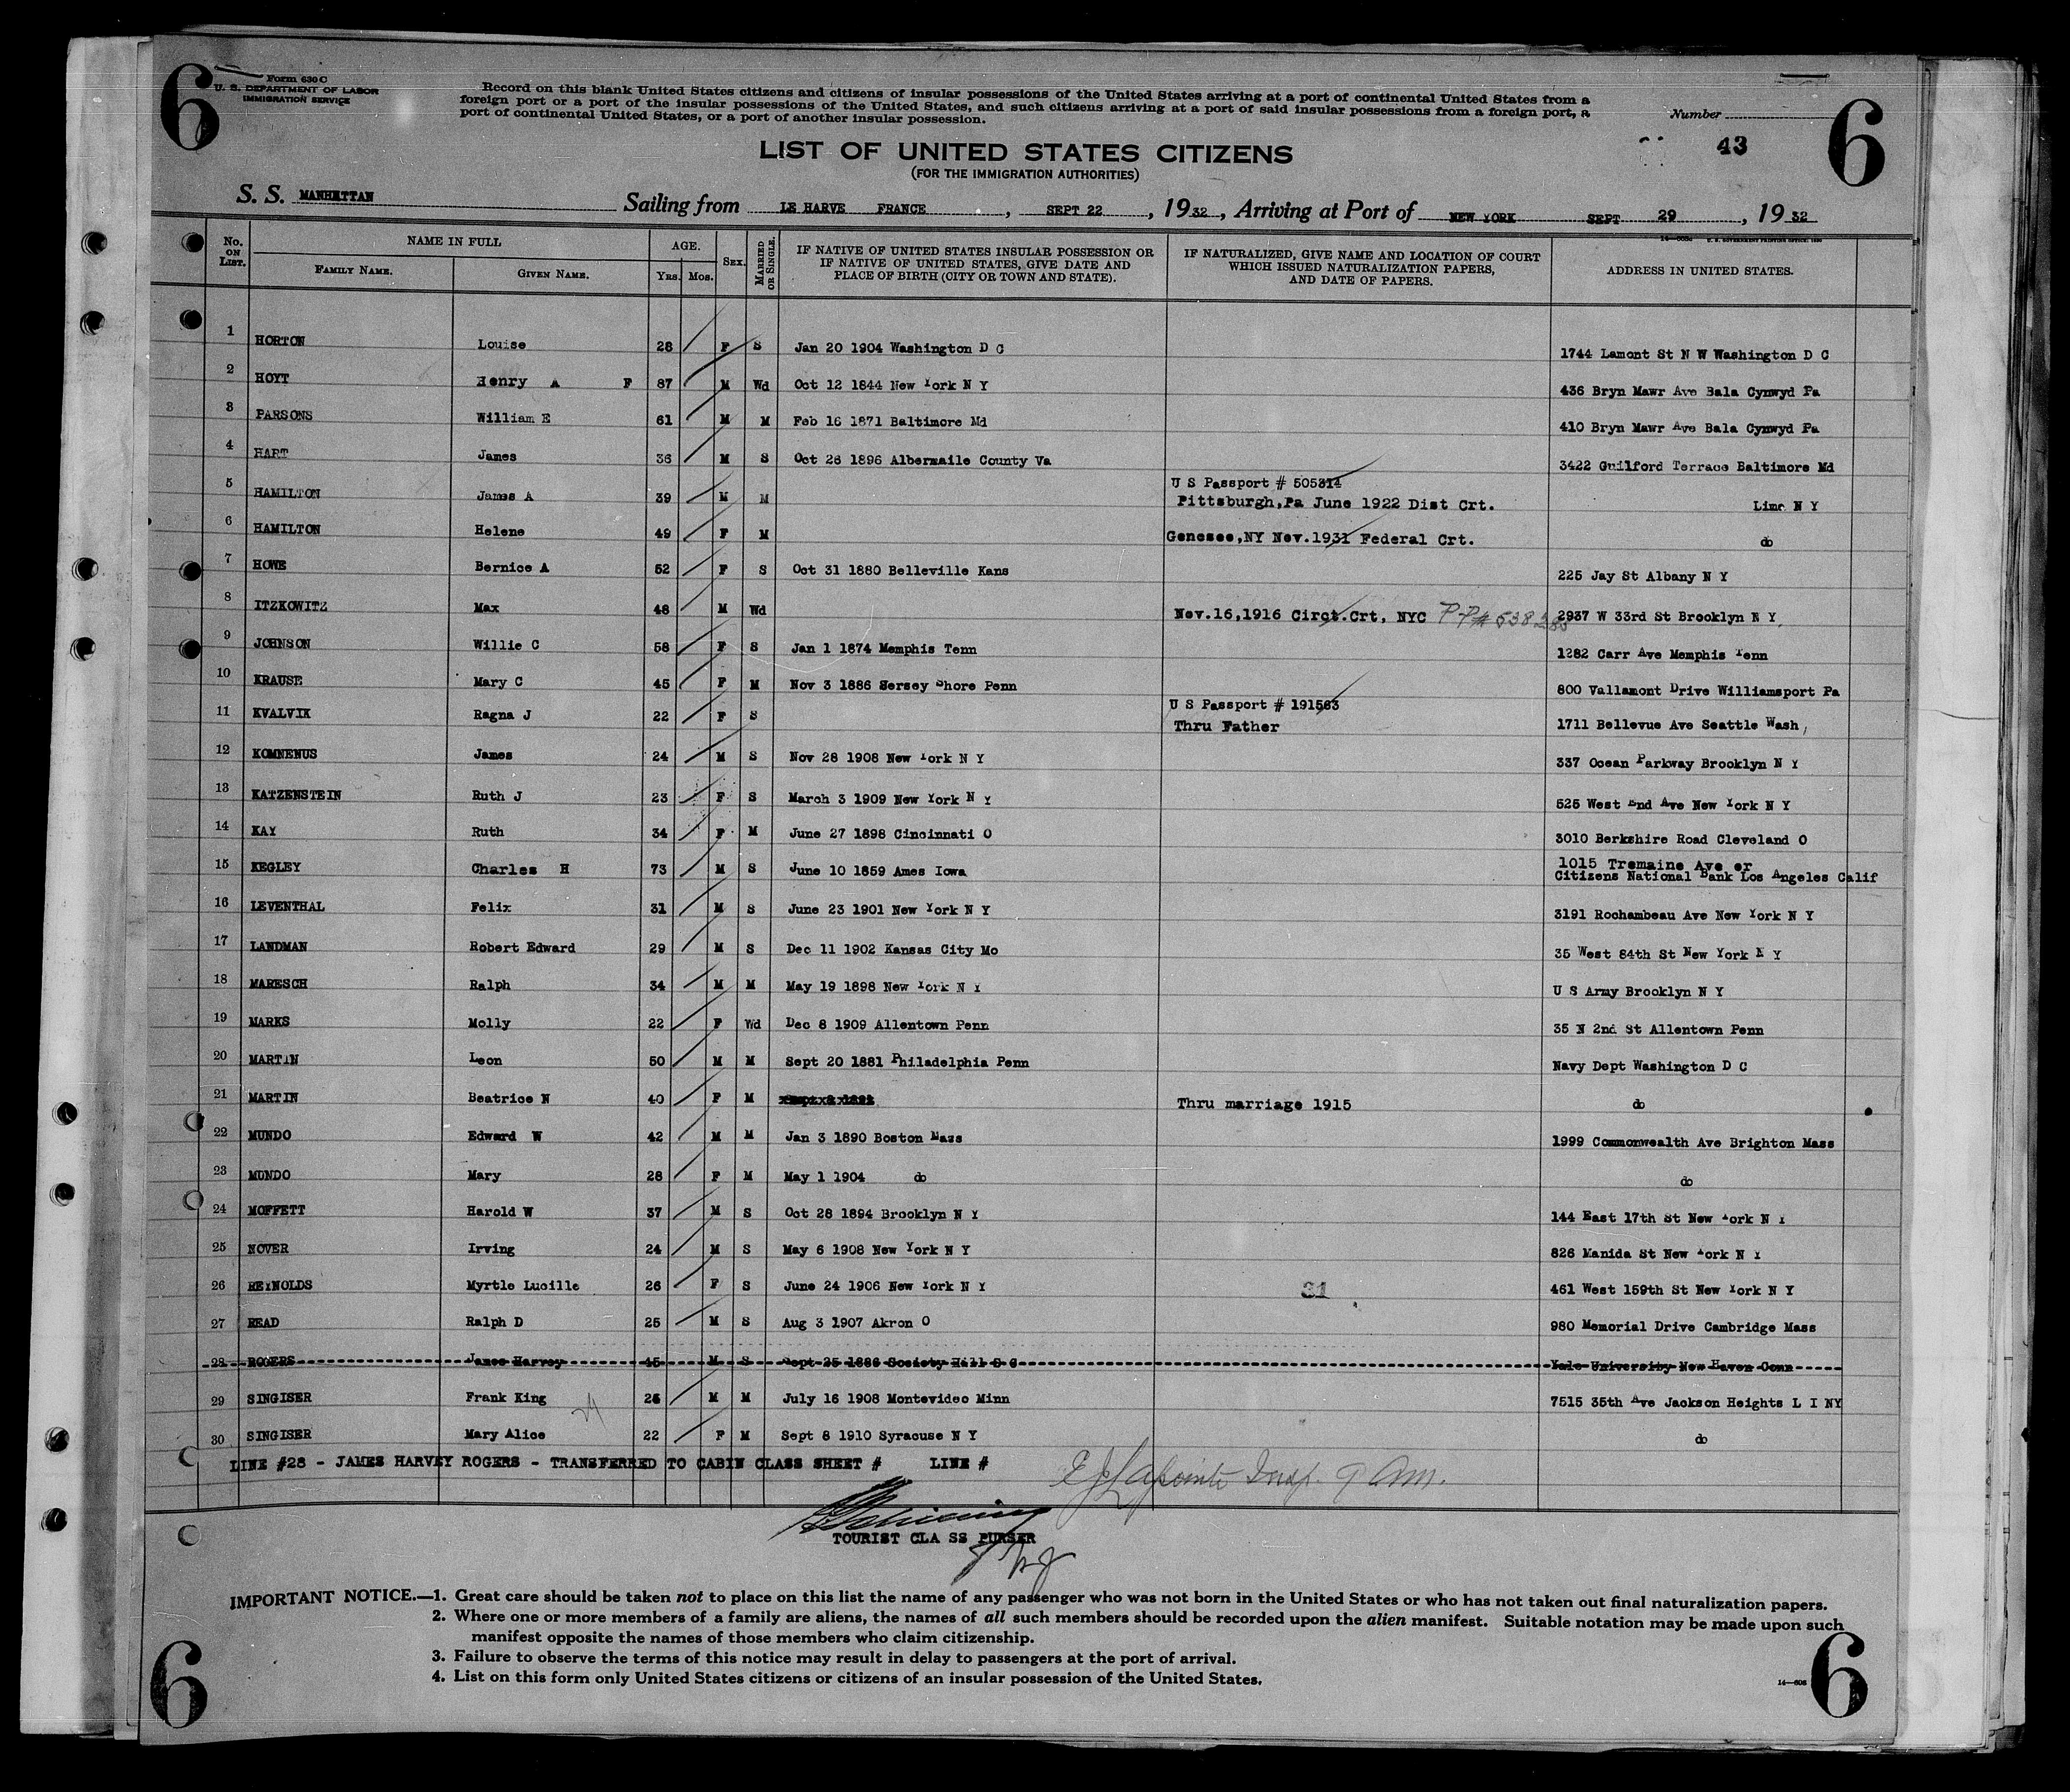 6
Form 630 C
U. S. DEPARTMENT OF LABOR
IMMIGRATION SERVICE
Record on this blank United States citizens and citizens of insular possessions of the United States arriving at a port of continental United States from a
foreign port or a port of the insular possessions of the United States, and such citizens arriving at a port of said insular possessions from a foreign port, a
port of continental United States, or a port of another insular possession.
Number
6
43
LIST OF UNITED STATES CITIZENS
(FOR THE IMMIGRATION AUTHORITIES)
S. S. MANHETTAN Sailing from LE HARVE FRANCE , SEPT 22 , 19 32 , Arriving at Port of NEW YORK SEPT 29 , 19 32
No. ON LIST. NAME IN FULL FAMILY NAME. GIVEN NAME. AGE. YRS. MOS. SEX. MARRIED OR SINGLE. IF NATIVE OF UNITED STATES INSULAR POSSESSION OR IF NATIVE OF UNITED STATES, GIVE DATE AND PLACE OF BIRTH (CITY OR TOWN AND STATE). IF NATURALIZED, GIVE NAME AND LOCATION OF COURT WHICH ISSUED NATURALIZATION PAPERS, AND DATE OF PAPERS. ADDRESS IN UNITED STATES.
1 HORTON Louise 28 F S Jan 20 1904 Washington D C 1744 Lamont St N W Washington D C
2 HOYT Henry A F 87 M Wd Oct 12 1844 New York N Y 436 Bryn Mawr Ave Bala Cynwyd Pa
3 PARSONS William E 61 M M Feb 16 1871 Baltimore Md 410 Bryn Mawr Ave Bala Cynwyd Pa
4 HART James 36 M S Oct 26 1896 Albermaile County Va 3422 Guilford Terrace Baltimore Md
U S Passport # 505314
5 HAMILTON James A 39 M M Pittsburgh,Pa June 1922 Dist Crt. Lime N Y
6 HAMILTON Helene 49 F M Genesee,NY Nov.1931 Federal Crt. do
7 HOWE Bernice A 52 F S Oct 31 1880 Belleville Kans 225 Jay St Albany N Y
8 ITZKOWITZ Max 48 M Wd Nov.16,1916 Circt.Crt, NYC 2937 W 33rd St Brooklyn N Y
9 JOHNSON Willie C 58 F S Jan 1 1874 Memphis Tenn 1282 Carr Ave Memphis Tenn
10 KRAUSE Mary C 45 F M Nov 3 1886 Sersey Shore Penn 800 Vallamont Drive Williamsport Pa
U S Passport # 191563
11 KVALVIK Ragna J 22 F S Thru Father 1711 Bellevue Ave Seattle Wash
12 KOMNENUS James 24 M S Nov 28 1908 New York N Y 337 Ocean Parkway Brooklyn N Y
13 KATZENSTEIN Ruth J 23 F S March 3 1909 New York N Y 525 West End Ave New York N Y
14 KAY Ruth 34 F M June 27 1898 Cincinnati O 3010 Berkshire Road Cleveland O
15 KEGLEY Charles H 73 M S June 10 1859 Ames Iowa 1015 Tremaine Ave or
Citizens National Bank Los Angeles Calif
16 LEVENTHAL Felix 31 M S June 23 1901 New York N Y 3191 Rochambeau Ave New York N Y
17 LANDMAN Robert Edward 29 M S Dec 11 1902 Kansas City Mo 35 West 84th St New York N Y
18 MARESCH Ralph 34 M M May 19 1898 New York N Y U S Army Brooklyn N Y
19 MARKS Molly 22 F Wd Dec 8 1909 Allentown Penn 35 N 2nd St Allentown Penn
20 MARTIN Leon 50 M M Sept 20 1881 Philadelphia Penn Navy Dept Washington D C
21 MARTIN Beatrice N 40 F M Thru marriage 1915 do
22 MUNDO Edward W 42 M M Jan 3 1890 Boston Mass 1999 Commonwealth Ave Brighton Mass
23 MUNDO Mary 28 F M May 1 1904 do do
24 MOFFETT Harold W 37 M S Oct 28 1894 Brooklyn N Y 144 East 17th St New York N Y
25 NOVER Irving 24 M S May 6 1908 New York N Y 826 Manida St New York N Y
26 REYNOLDS Myrtle Lucille 26 F S June 24 1906 New York N Y 31 461 West 159th St New York N Y
27 READ Ralph D 25 M S Aug 3 1907 Akron O 980 Memorial Drive Cambridge Mass
28 ROGERS James Harvey 45 M S Sept 25 1886 Society Hill S C Yale University New Haven Conn
29 SINGISER Frank King 24 M M July 16 1908 Montevideo Minn 7515 35th Ave Jackson Heights L I NY
30 SINGISER Mary Alice 22 F M Sept 8 1910 Syracuse N Y do
LINE #28 - JAMES HARVEY ROGERS - TRANSFERRED TO CABIN CLASS SHEET # LINE #
TOURIST CLA SS PURSER
IMPORTANT NOTICE.—1. Great care should be taken not to place on this list the name of any passenger who was not born in the United States or who has not taken out final naturalization papers.
2. Where one or more members of a family are aliens, the names of all such members should be recorded upon the alien manifest. Suitable notation may be made upon such
manifest opposite the names of those members who claim citizenship.
3. Failure to observe the terms of this notice may result in delay to passengers at the port of arrival.
4. List on this form only United States citizens or citizens of an insular possession of the United States.
6
6